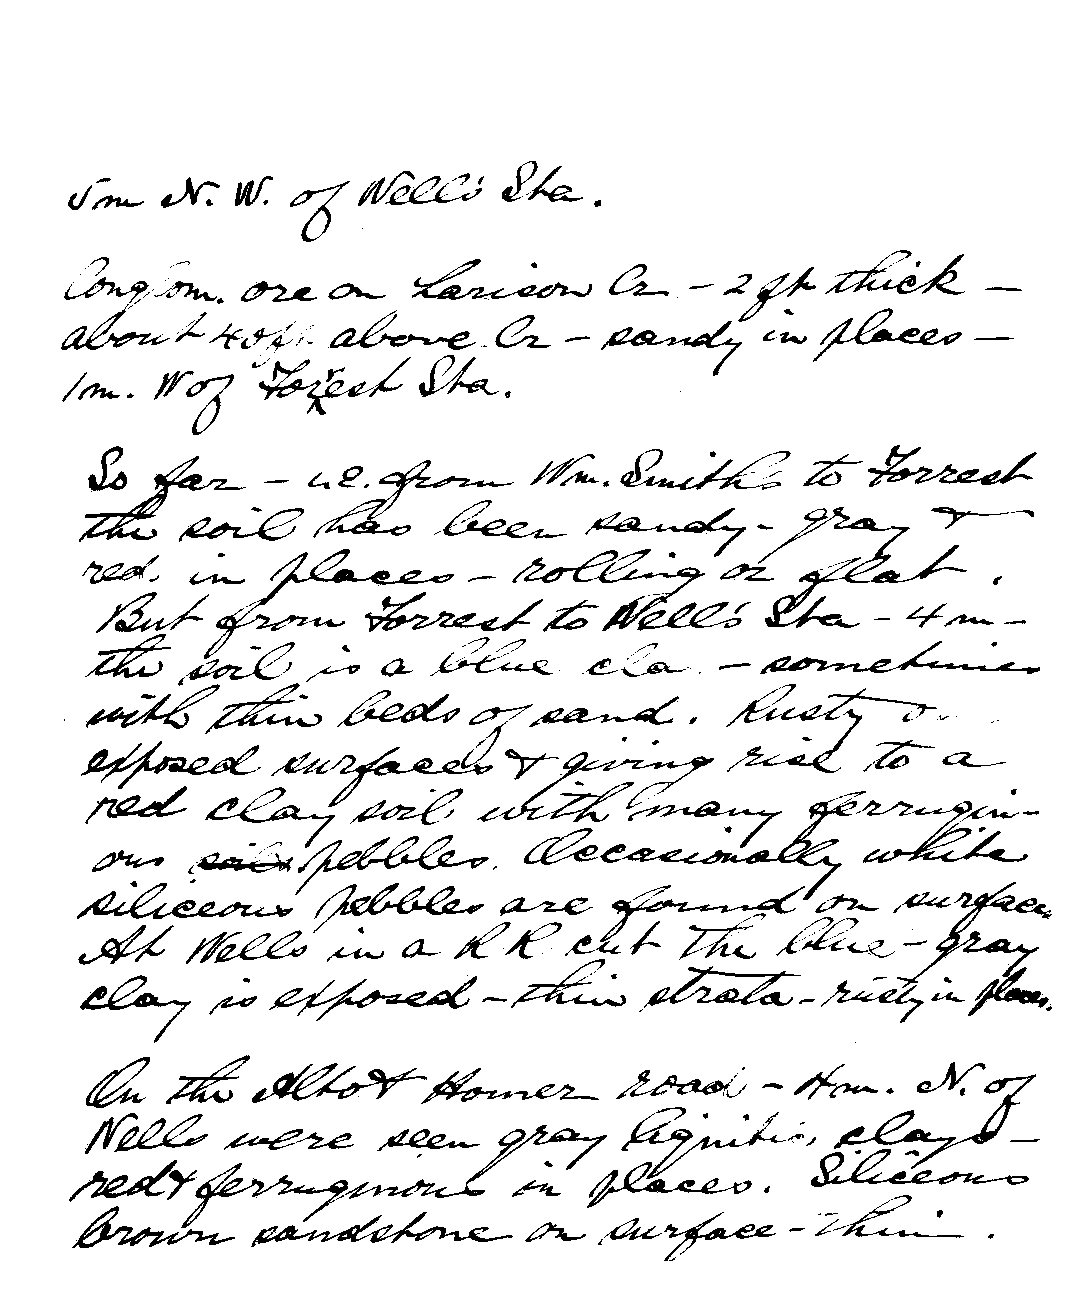 5m N. W. of Well's Sta.
Conglom. ore on Larison Cr - 2 ft thick -
about 40 ft. above Cr - sandy in places -
1m. W of Forrest Sta.
So far - i.e. from Wm. Smith's to Forrest
the soil has been sandy - gray &
red. in places - rolling or flat.
But from Forrest to Well's Sta - 4 m -
the soil is a blue cla - sometimes
with thin beds of sand. Rusty o
exposed surfaces & giving rise to a
red clay soil with many ferrugin-
ous soils pebbles. Occasionally white
siliceous pebbles are found on surface
At Wells in a R R cut the blue-gray
clay is exposed - thin strata - rusty in places.
On the Alto & Homer road - 4m. N. of
Wells were seen gray lignitic clays -
red & ferruginous in places. Siliceous
brown sandstone on surface - thin.